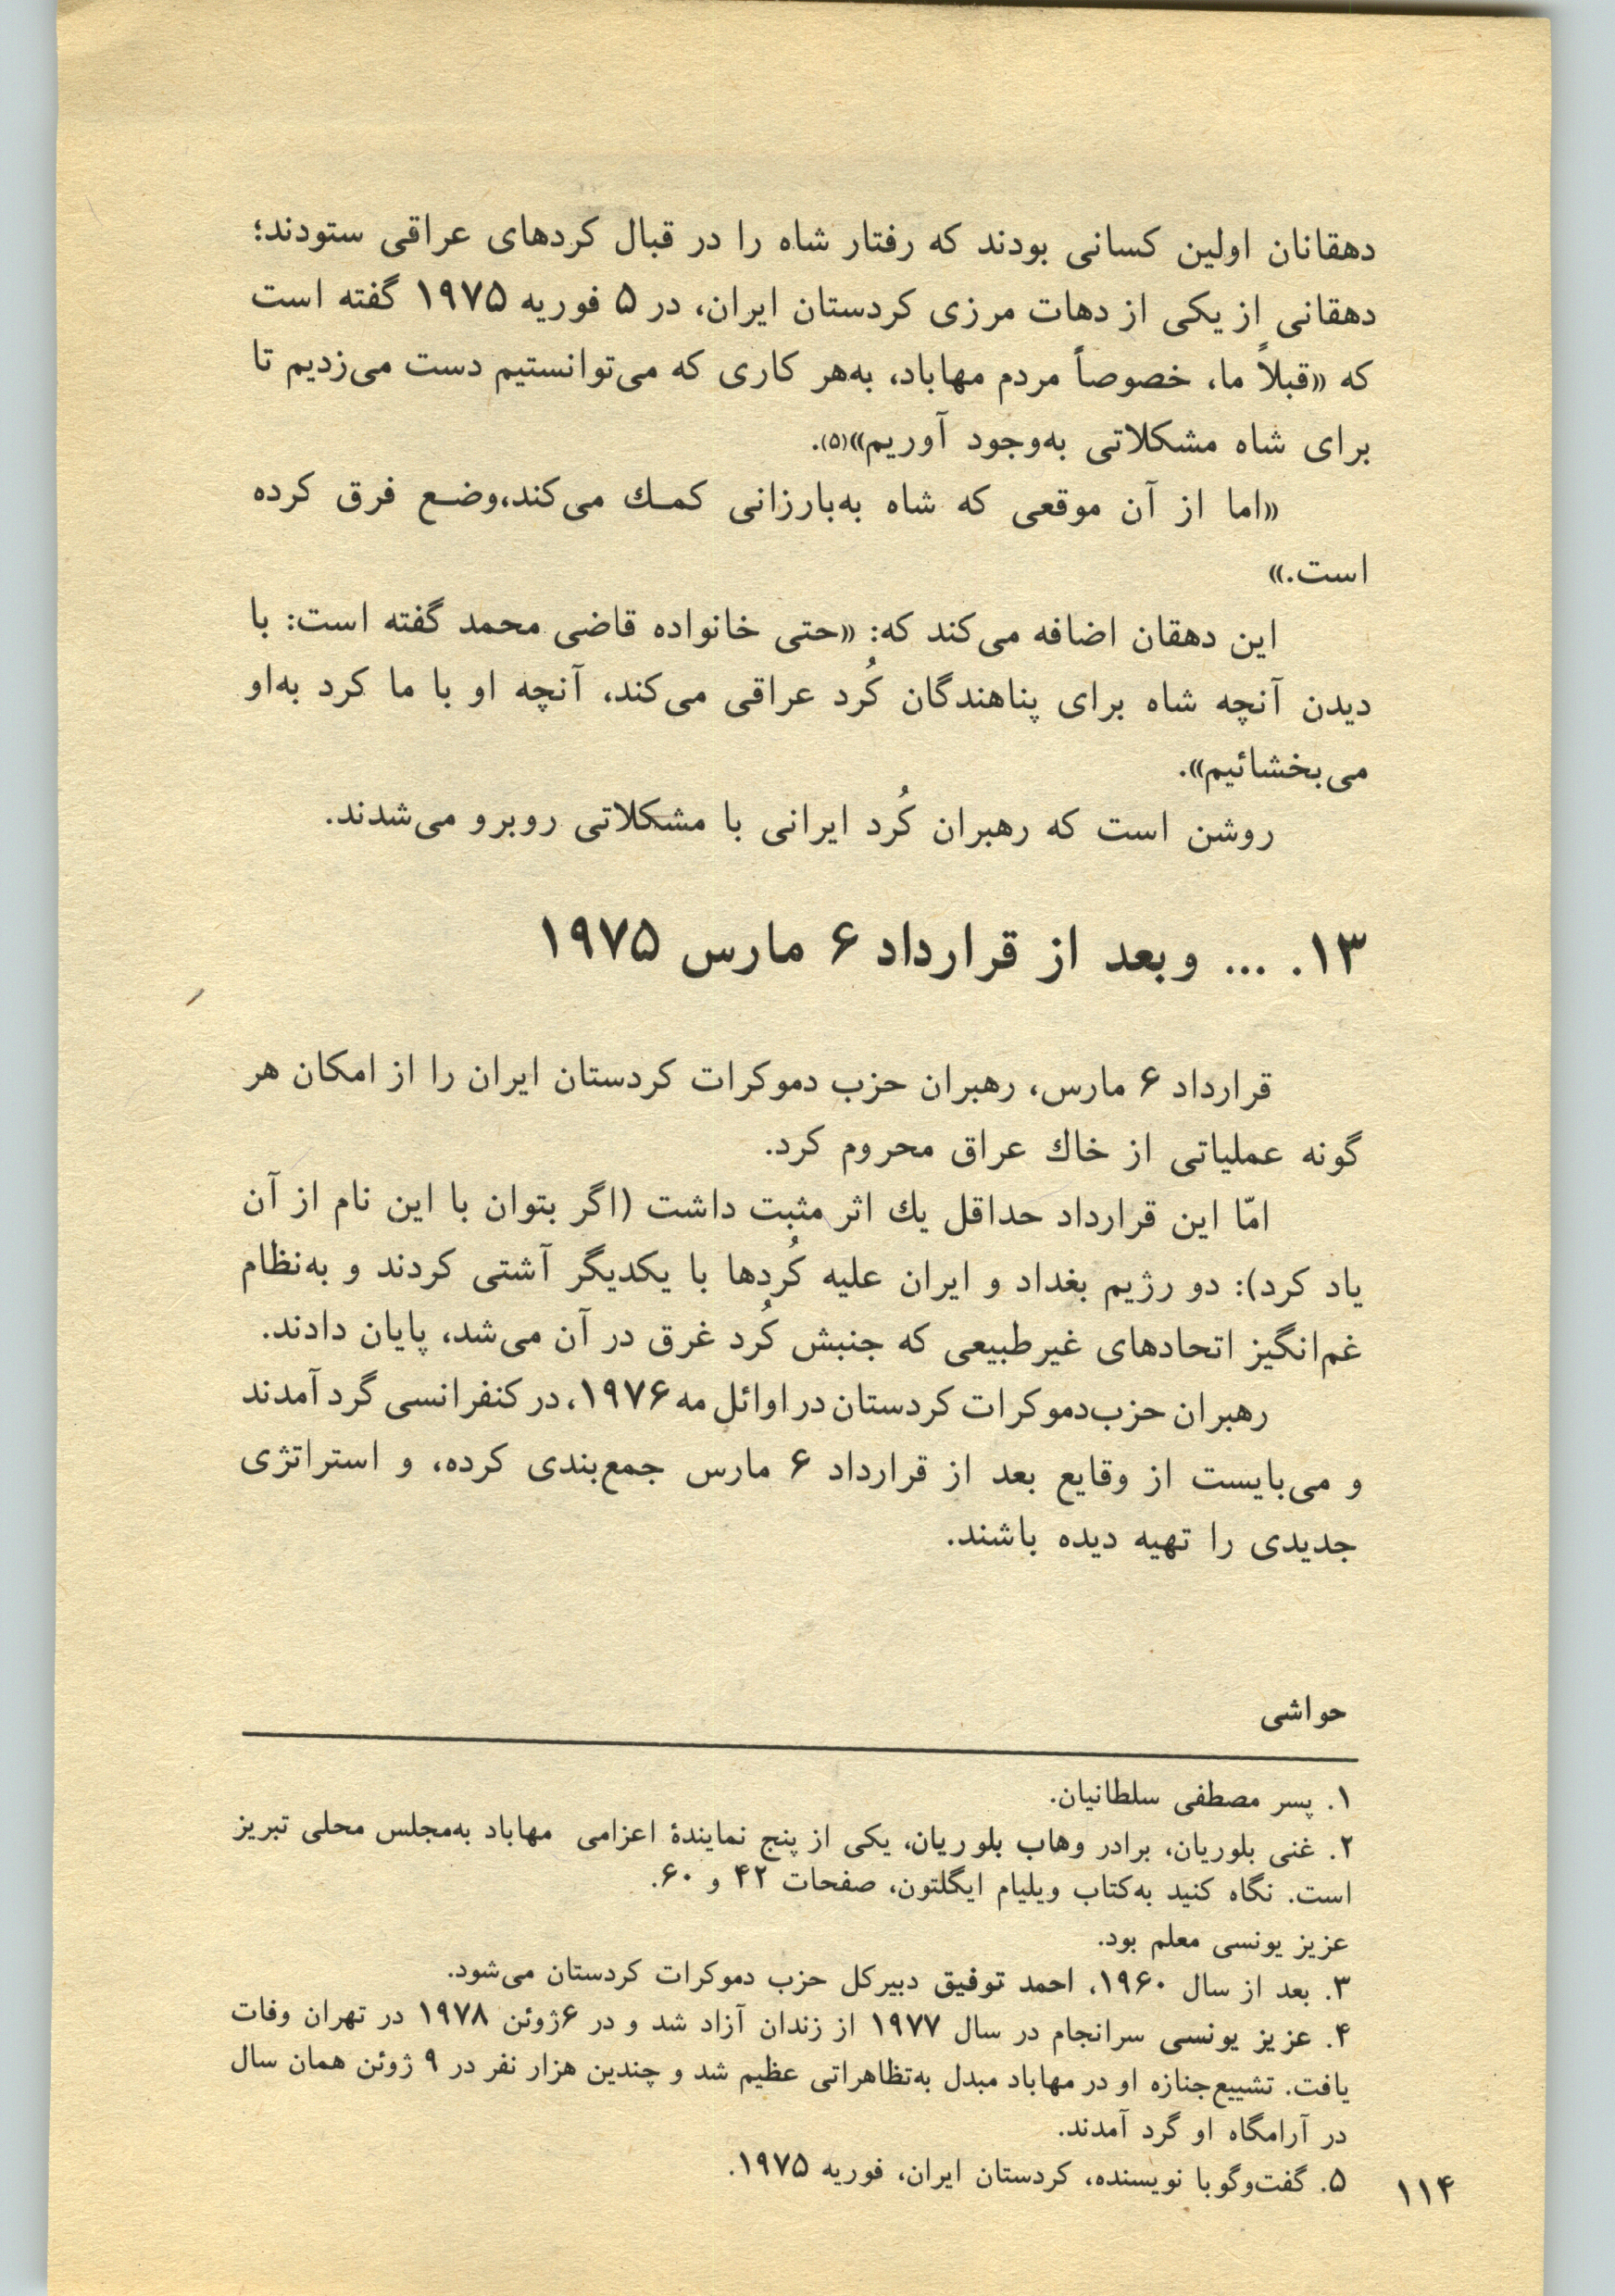 دهقانان اولین کسانی بودند که رفتار شاه را در قبال کردهای عراقی ستودند؛
دهقانی از یکی از دهات مرزی کردستان ایران، در ۵ فوریه ۱۹۷۵ گفته است
که «قبلاً ما، خصوصاً مردم مهاباد، به‌هر کاری که می‌توانستیم دست می‌زدیم تا
برای شاه مشکلاتی به‌وجود آوریم»(۵).
«اما از آن موقعی که شاه به‌بارزانی کمـك می‌کند،وضـع فرق کرده
است.»
این دهقان اضافه می‌کند که: «حتی خانواده قاضی محمد گفته است: با
دیدن آنچه شاه برای پناهندگان کُرد عراقی می‌کند، آنچه او با ما کرد به‌او
می‌بخشائیم».
روشن است که رهبران کُرد ایرانی با مشکلاتی روبرو می‌شدند.
۱۳. ... و بعد از قرارداد ۶ مارس ۱۹۷۵
قرارداد ۶ مارس، رهبران حزب دموکرات کردستان ایران را از امکان هر
گونه عملیاتی از خاك عراق محروم کرد.
امّا این قرارداد حداقل یك اثر مثبت داشت (اگر بتوان با این نام از آن
یاد کرد): دو رژیم بغداد و ایران علیه کُردها با یکدیگر آشتی کردند و به‌نظام
غم‌انگیز اتحادهای غیرطبیعی که جنبش کُرد غرق در آن می‌شد، پایان دادند.
رهبران حزب‌دموکرات کردستان در اوائل مه ۱۹۷۶، در کنفرانسی گرد آمدند
و می‌بایست از وقایع بعد از قرارداد ۶ مارس جمع‌بندی کرده، و استراتژی
جدیدی را تهیه دیده باشند.
حواشی
۱. پسر مصطفی سلطانیان.
۲. غنی بلوریان، برادر وهاب بلوریان، یکی از پنج نمایندهٔ اعزامی مهاباد به‌مجلس محلی تبریز
است. نگاه کنید به‌کتاب ویلیام ایگلتون، صفحات ۴۲ و ۶۰.
عزیز یونسی معلم بود.
۳. بعد از سال ۱۹۶۰، احمد توفیق دبیرکل حزب دموکرات کردستان می‌شود.
۴. عزیز یونسی سرانجام در سال ۱۹۷۷ از زندان آزاد شد و در ۶ژوئن ۱۹۷۸ در تهران وفات
یافت. تشییع‌جنازه او در مهاباد مبدل به‌تظاهراتی عظیم شد و چندین هزار نفر در ۹ ژوئن همان سال
در آرامگاه او گرد آمدند.
۵. گفت‌وگو با نویسنده، کردستان ایران، فوریه ۱۹۷۵.
۱۱۴